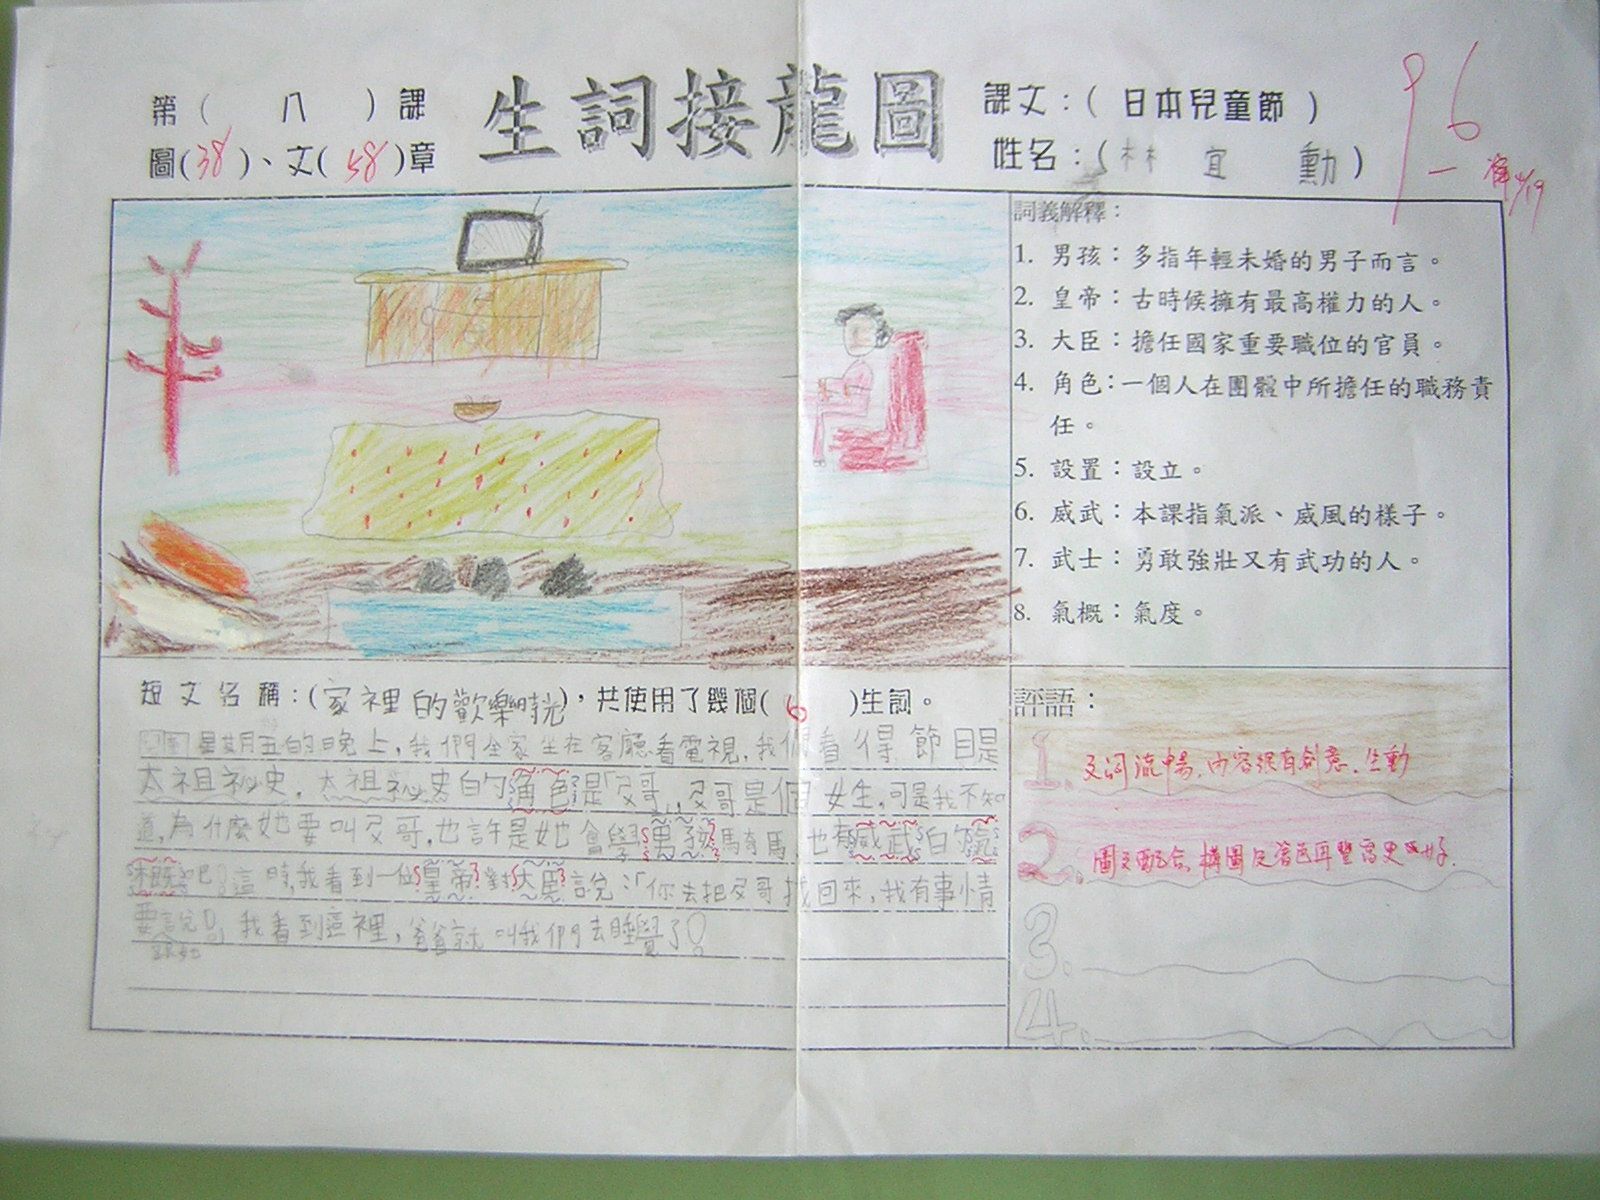 生詞接龍圖
第( 八 )課
圖(38)、文(58)章
課文:(日本兒童節)
姓名:(林宜勳)
96
詞義解釋:
1. 男孩:多指年輕未婚的男子而言。
2. 皇帝:古時候擁有最高權力的人。
3. 大臣:擔任國家重要職位的官員。
4. 角色:一個人在團體中所擔任的職務責
任。
5. 設置:設立。
6. 威武:本課指氣派、威風的樣子。
7. 武士:勇敢強壯又有武功的人。
8. 氣概:氣度。
短文名稱:(家裡的歡樂時光),共使用了幾個(6)生詞。
星期五的晚上,我們全家坐在客廳看電視,我們看得節目是
太祖祕史。太祖祕史的角色是「反哥」,反哥是個女生,可是我不知
道,為什麼她要叫反哥,也許是她會學男孩騎馬,也有威武的氣
概吧!這時,我看到一位皇帝對大臣說:「你去把反哥找回來,我有事情
要說」!我看到這裡,爸爸就叫我們去睡覺了!
評語:
1. 文詞流暢、內容很有創意、生動
2. 圖文配合、構圖及著色再豐富更好.
3.
4.